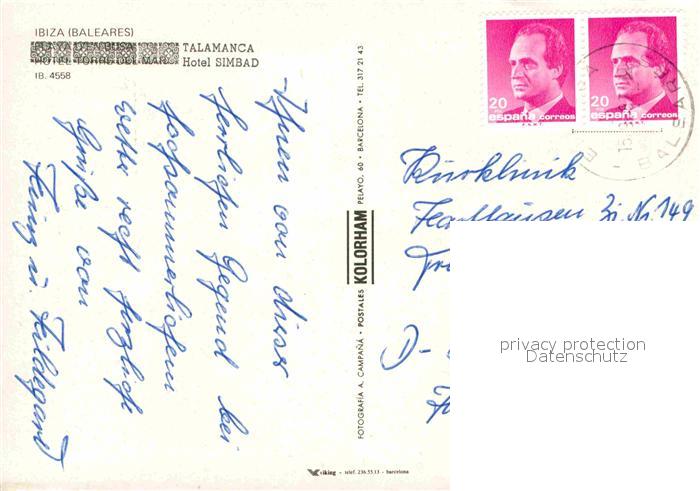 IBIZA (BALEARES)
PLAYA D'EN BOSA
HOTEL TORRE DEL MAR
TALAMANCA
Hotel SIMBAD
IB. 4558
Ihnen von dieser
herrlichen Gegend bei
hochsommerlichem
Wetter recht herzliche
Grüße von
u. Hildegard
FOTOGRAFÍA A. CAMPAÑÁ • POSTALES KOLORHAM PELAYO, 60 • BARCELONA • TEL. 317 21 43
viking - telef. 236.55.13 - barcelona
20
españa correos
20
españa correos
BALEARES
Kurklinik
Zi. Nr. 149
D-
privacy protection
Datenschutz